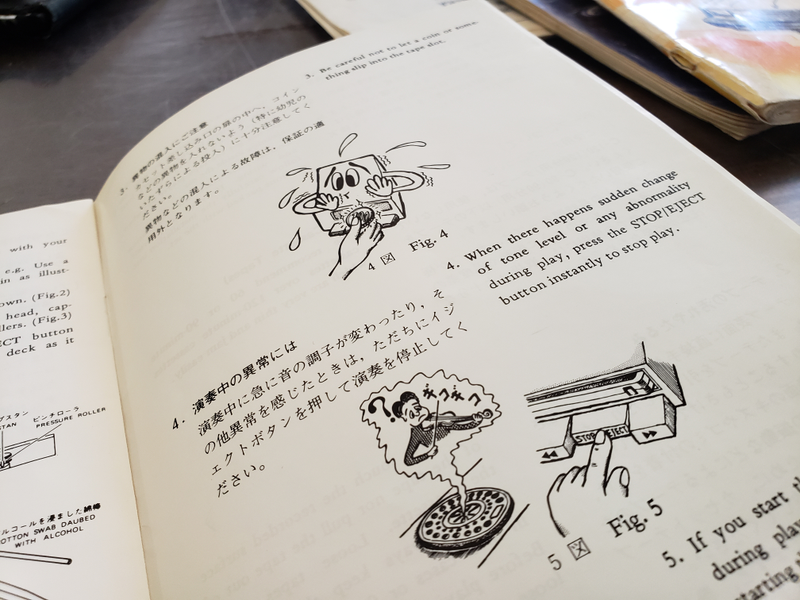 with your
e.g. Use a
in as illust-
own. (Fig.2)
head, cap-
llers. (Fig.3)
ECT button
deck as it
プスタン
STAN
ピンチローラ
PRESSURE ROLLER
ルコールを浸ました綿棒
OTTON SWAB DAUBED
WITH ALCOHOL
3. 異物の混入にご注意
カセット差し込み口の扉の中へ，コイン
などの異物を入れないよう（特に幼児の
いたずらによる投入）に十分注意してく
ださい。
異物などの混入による故障は，保証の適
用外となります。
3. Be careful not to let a coin or some-
thing slip into the tape slot.
4 図 Fig. 4
4. 演奏中の異常には
演奏中に急に音の調子が変わったり，そ
の他異常を感じたときは，ただちにイジ
ェクトボタンを押して演奏を停止してく
ださい。
4. When there happens sudden change
of tone level or any abnormality
during play, press the STOP/EJECT
button instantly to stop play.
??
ギコギコ
STOP EJECT
5 図 Fig. 5
5. If you start th
during play
starting th